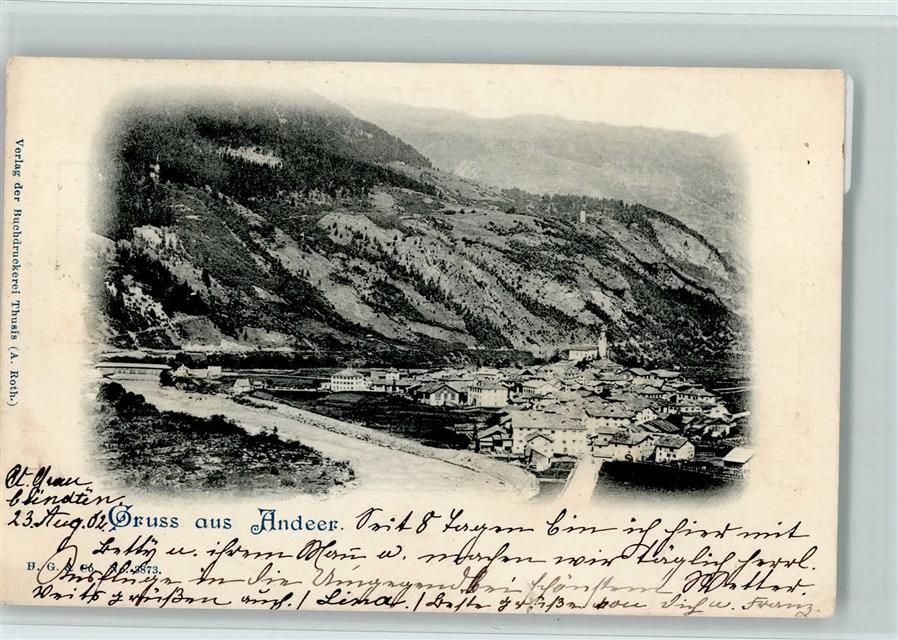 Verlag der Buchdruckerei Thusis (A. Roth.)
Ct. Grau
bünden
23. Aug. 02.
Gruss aus Andeer.
Seit 8 Tagen bin ich hier mit
Betty u. ihrem Mann u. machen wir täglich herrl.
H. G. & Co. No. 3873.
Ausflüge in die Umgegend bei schönstem Wetter.
Veits grüßen auch. / Lina. / Beste Grüße von Dich u. Franz.